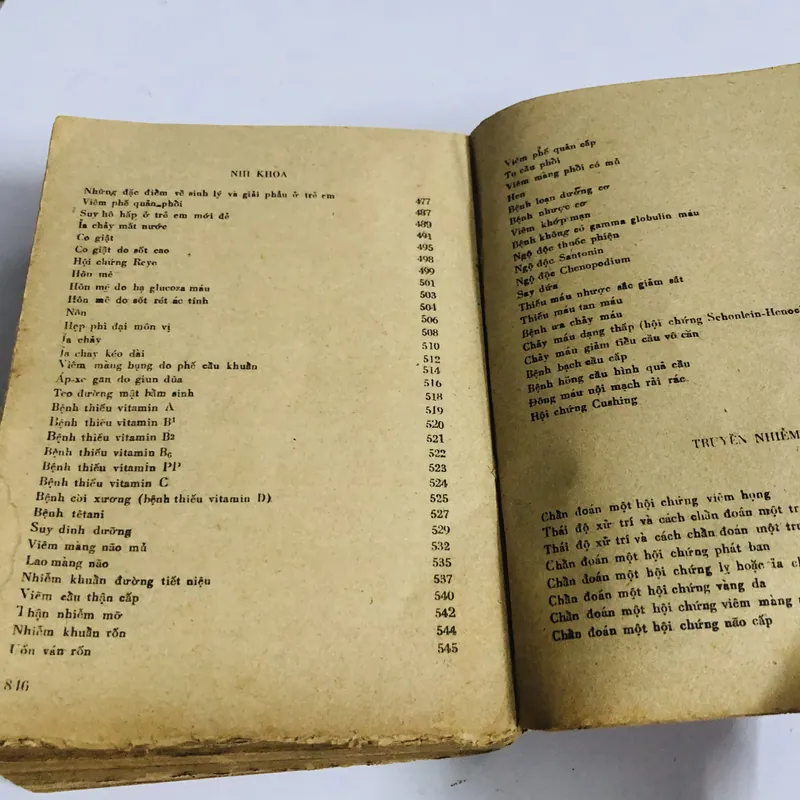 NHI KHOA
Những đặc điểm về sinh lý và giải phẫu ở trẻ em 477
Viêm phế quản phổi 487
Suy hô hấp ở trẻ em mới đẻ 489
Ỉa chảy mất nước 491
Co giật 495
Co giật do sốt cao 498
Hội chứng Reye 499
Hôn mê 501
Hôn mê do hạ glucoza máu 503
Hôn mê do sốt rét ác tính 504
Nôn 506
Hẹp phì đại môn vị 508
Ỉa chảy 510
Ỉa chảy kéo dài 512
Viêm màng bụng do phế cầu khuẩn 514
Áp-xe gan do giun đũa 516
Teo đường mật bẩm sinh 518
Bệnh thiếu vitamin A 519
Bệnh thiếu vitamin B1 520
Bệnh thiếu vitamin B2 521
Bệnh thiếu vitamin B6 522
Bệnh thiếu vitamin PP 523
Bệnh thiếu vitamin C 524
Bệnh còi xương (bệnh thiếu vitamin D) 525
Bệnh têtani 527
Suy dinh dưỡng 529
Viêm màng não mủ 532
Lao màng não 535
Nhiễm khuẩn đường tiết niệu 537
Viêm cầu thận cấp 540
Thận nhiễm mỡ 542
Nhiễm khuẩn rốn 544
Uốn ván rốn 545
846
Viêm phế quản cấp
Tụ cầu phổi
Viêm màng phổi có mủ
Hen
Bệnh loạn dưỡng cơ
Bệnh nhược cơ
Viêm khớp mạn
Bệnh không có gamma globulin máu
Ngộ độc thuốc phiện
Ngộ độc Santonin
Ngộ độc Chenopodium
Say dứa
Thiếu máu nhược sắc giảm sắt
Thiếu máu tan máu
Bệnh ưa chảy máu
Chảy máu dạng thấp (hội chứng Schonlein-Henoc
Chảy máu giảm tiểu cầu vô căn
Bệnh bạch cầu cấp
Bệnh hồng cầu hình quả cầu
Đông máu nội mạch rải rác
Hội chứng Cushing
TRUYỀN NHIỄM
Chẩn đoán một hội chứng viêm họng
Thái độ xử trí và cách chẩn đoán một tr
Thái độ xử trí và cách chẩn đoán một trư
Chẩn đoán một hội chứng phát ban
Chẩn đoán một hội chứng lỵ hoặc ỉa ch
Chẩn đoán một hội chứng vàng da
Chẩn đoán một hội chứng viêm màng
Chẩn đoán một hội chứng não cấp